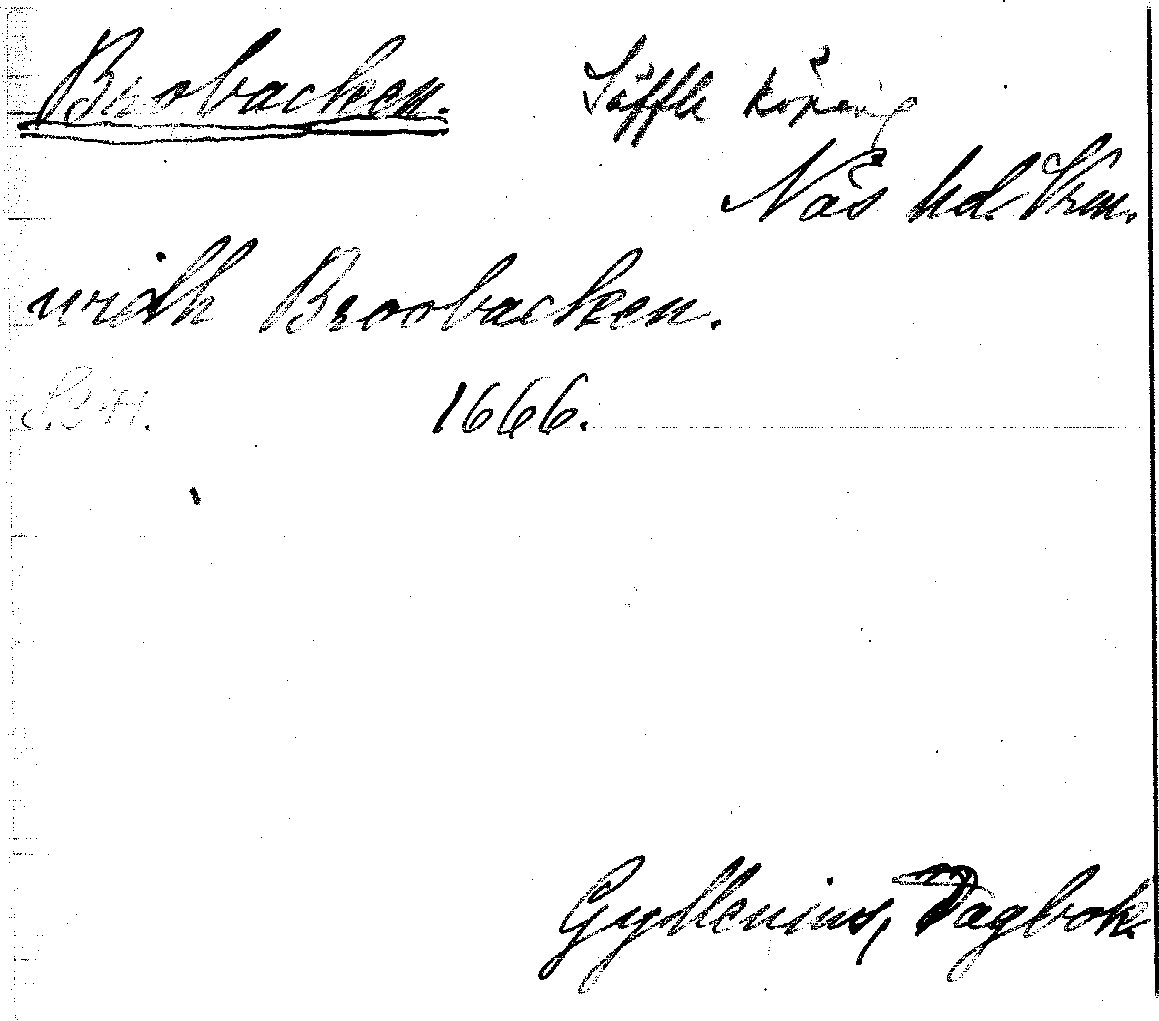 Brobacken. Säffle köping
Näs hd. Vrm.
widh Broobacken.
1666.
Gyllenius, Dagbok.